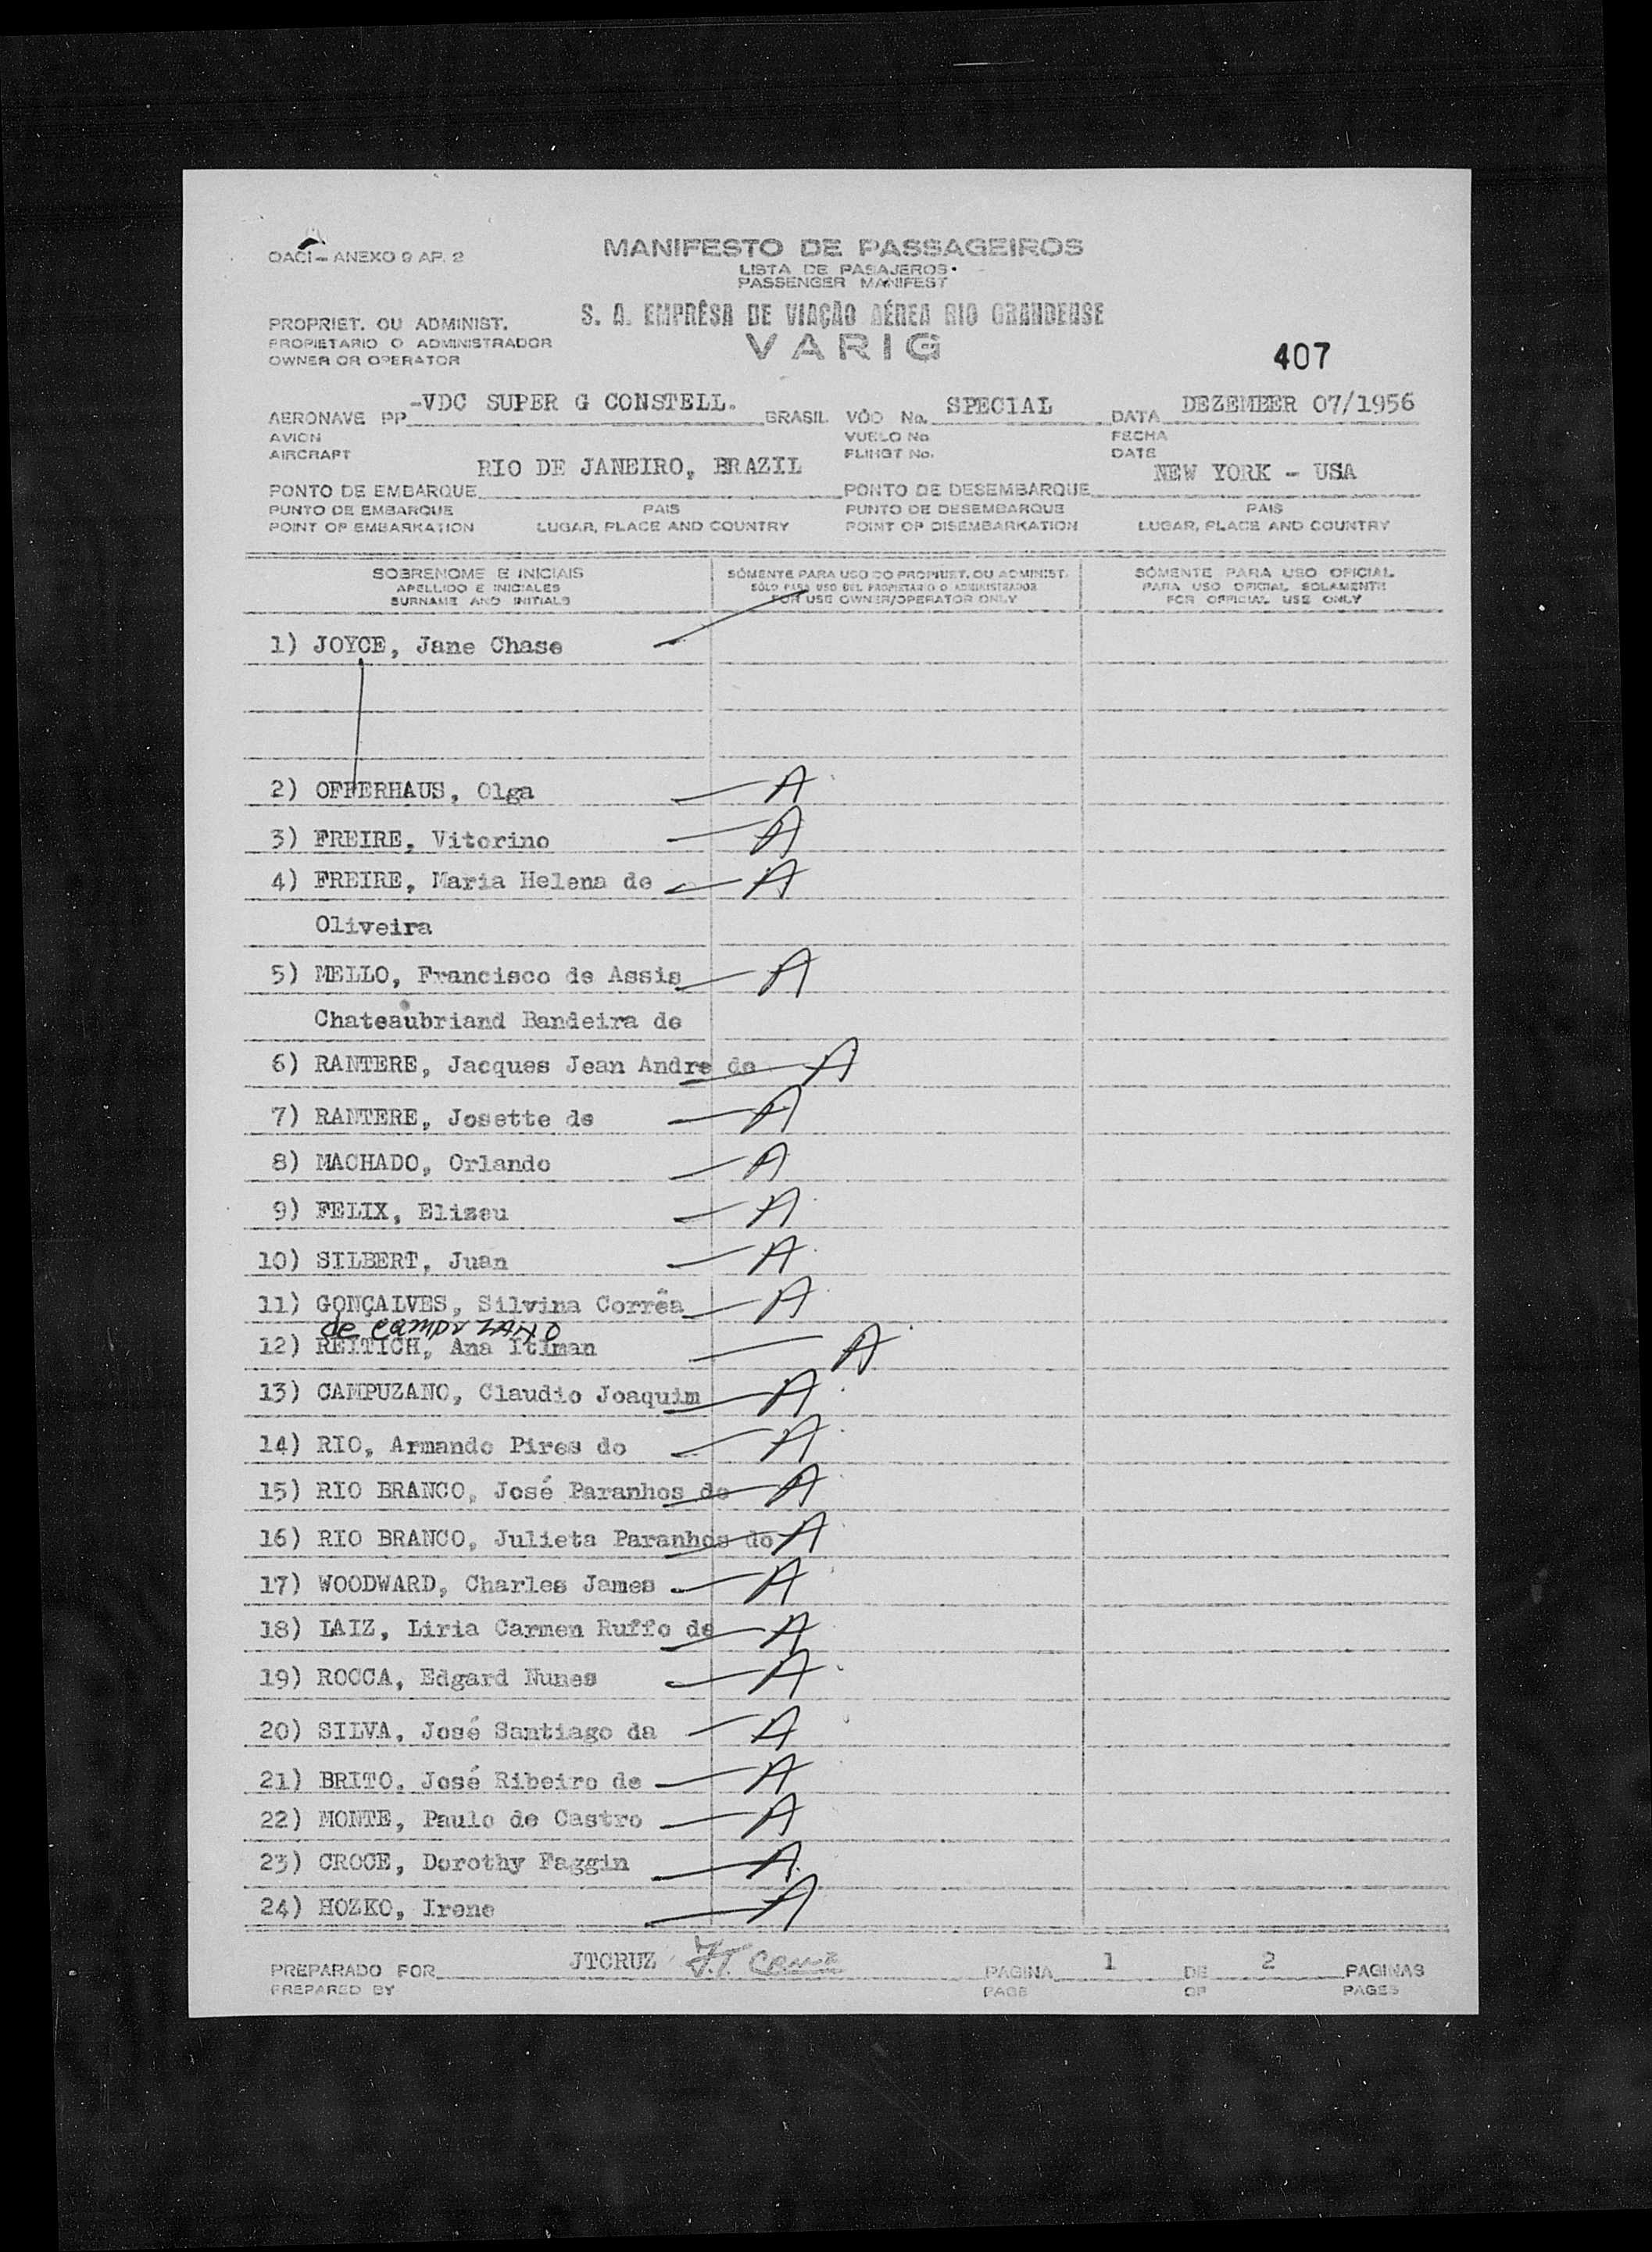 OACI - ANEXO 9 AP. 2
MANIFESTO DE PASSAGEIROS
LISTA DE PASAJEROS
PASSENGER MANIFEST
S. A. EMPRÊSA DE VIAÇÃO AÉREA RIO GRANDENSE
VARIG
PROPRIET. OU ADMINIST.
PROPIETARIO O ADMINISTRADOR
OWNER OR OPERATOR
407
AERONAVE PP -VDC SUPER G CONSTELL. BRASIL VÔO No. SPECIAL DATA DEZEMBER 07/1956
AVION VUELO No FECHA
AIRCRAFT FLIHGT No. DATE
PONTO DE EMBARQUE RIO DE JANEIRO, BRAZIL PONTO DE DESEMBARQUE NEW YORK - USA
PUNTO DE EMBARQUE PAIS PUNTO DE DESEMBARQUE PAIS
POINT OF EMBARKATION LUGAR, PLACE AND COUNTRY POINT OF DISEMBARKATION LUGAR, PLACE AND COUNTRY
SOBRENOME E INICIAIS SÓMENTE PARA USO DO PROPRIET. OU ADMINIST. SÓMENTE PARA USO OFICIAL
APELLIDO E INICIALES SÓLO PARA USO DEL PROPIETARIO O ADMINISTRADOR PARA USO OFICIAL SOLAMENTE
SURNAME AND INITIALS FOR USE OWNER/OPERATOR ONLY FOR OFFICIAL USE ONLY
1) JOYCE, Jane Chase
2) OFFERHAUS, Olga A
3) FREIRE, Vitorino A
4) FREIRE, Maria Helena de A
Oliveira
5) MELLO, Francisco de Assis A
Chateaubriand Bandeira de
6) RANTERE, Jacques Jean Andre de A
7) RANTERE, Josette de A
8) MACHADO, Orlando A
9) FELIX, Elizeu A
10) SILBERT, Juan A
11) GONÇALVES, Silvina Corrêa A
de CAMPUZANO
12) REITICH, Ana Itiman A
13) CAMPUZANO, Claudio Joaquim A
14) RIO, Armando Pires do A
15) RIO BRANCO, José Paranhos do A
16) RIO BRANCO, Julieta Paranhos do A
17) WOODWARD, Charles James A
18) LAIZ, Liria Carmen Ruffo de A
19) ROCCA, Edgard Nunes A
20) SILVA, José Santiago da A
21) BRITO, José Ribeiro de A
22) MONTE, Paulo de Castro A
23) CROCE, Dorothy Faggin A
24) HOZKO, Irene A
PREPARADO POR JTCRUZ J.T. Cruz PAGINA 1 DE 2 PAGINAS
PREPARED BY PAGE OF PAGES